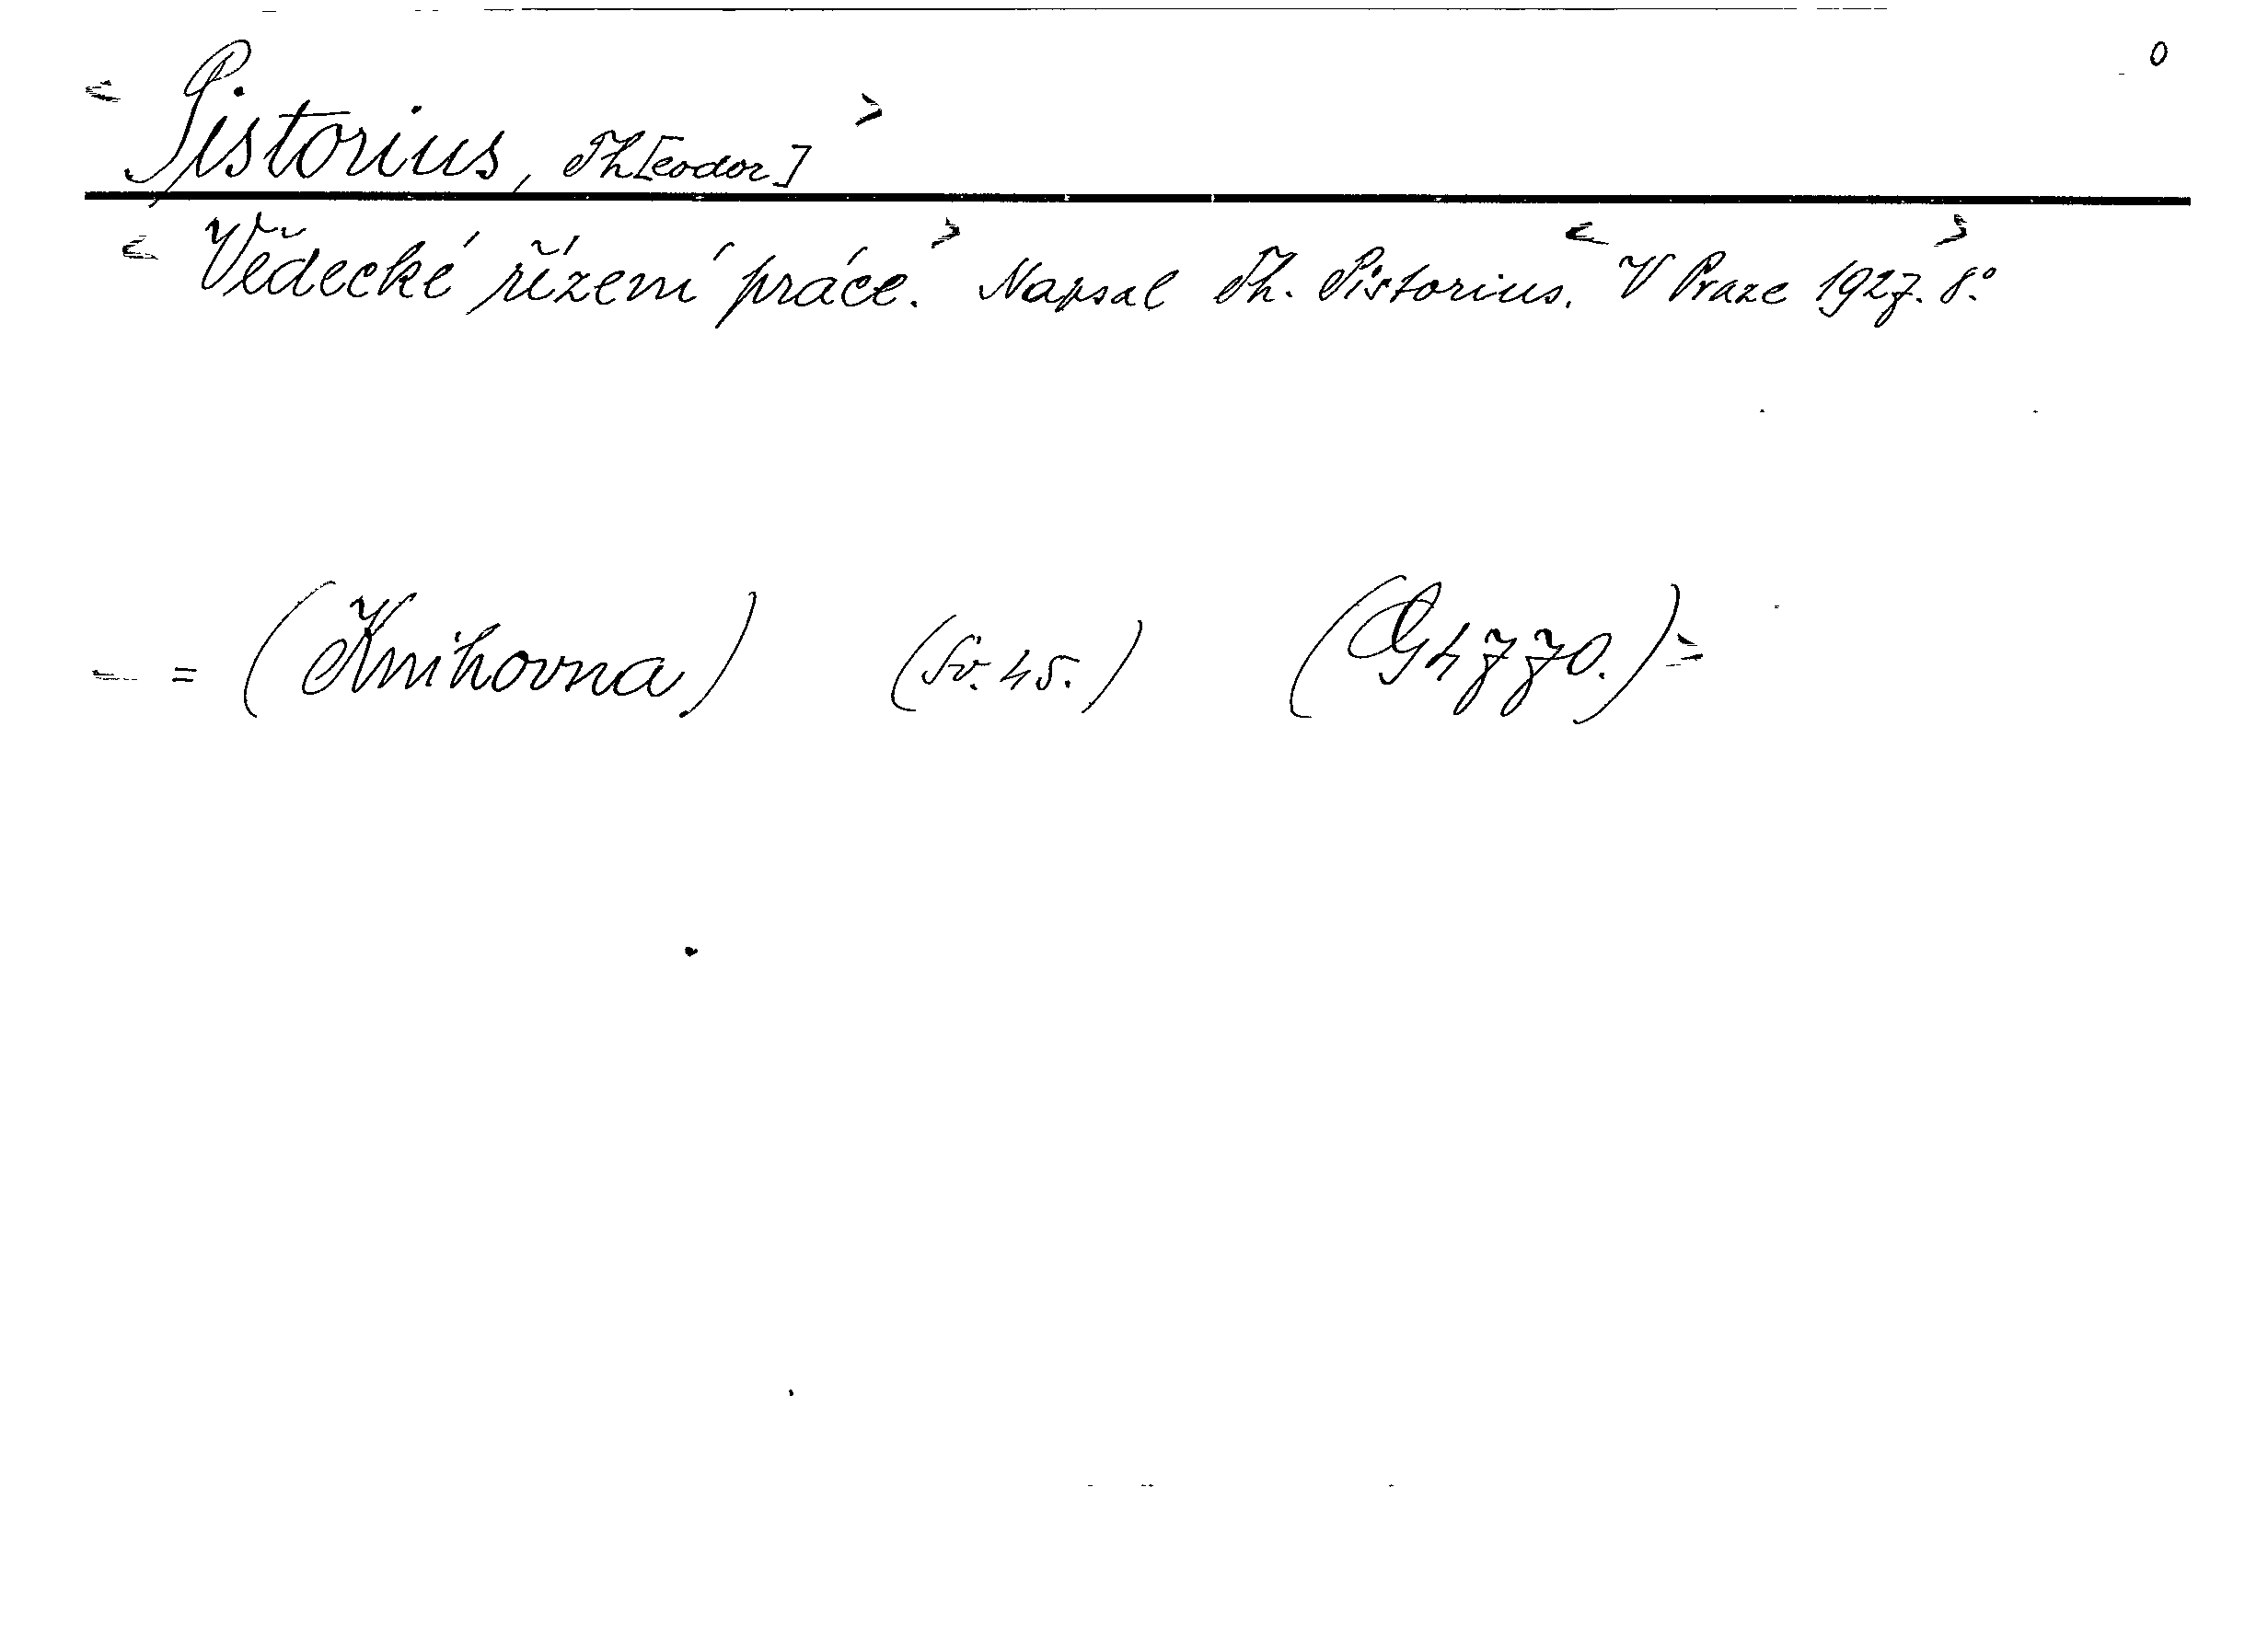 0
< Pistorius, Th[eodor] >
< Vědecké řízení práce. > Napsal Th. Pistorius. < V Praze 1927. 8.° >
= (Knihovna) (Sv. 45.) (G 4770.) >